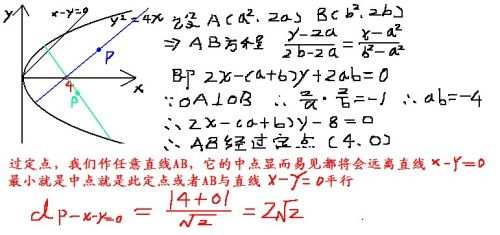 y
x-y=0
y²=4x
P
4
P
x
设 A(a², 2a) B(b², 2b)
⇒ AB方程 (y-2a)/(2b-2a) = (x-a²)/(b²-a²)
即 2x-(a+b)y+2ab=0
∵OA⊥OB ∴ 2/a · 2/b = -1 ∴ab=-4
∴2x-(a+b)y-8=0
∴AB经过定点 (4,0)
过定点，我们作任意直线AB，它的中点显而易见都将会远离直线 x-y=0
最小就是中点就是此定点或者AB与直线 x-y=0平行
d P-x-y=0 = |4+0|/√2 = 2√2